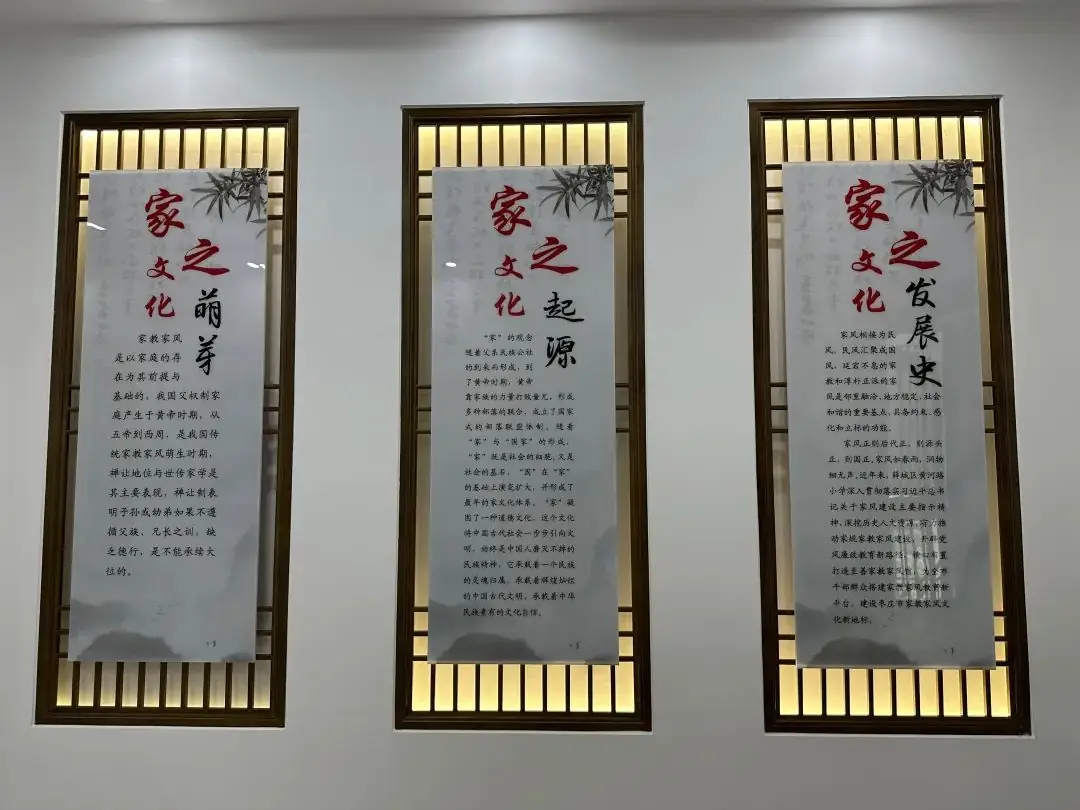 家文化
之萌芽
家教家风
是以家庭的存
在为其前提与
基础的，我国父权制家
庭产生于黄帝时期，从
五帝到西周，是我国传
统家教家风萌生时期，
禅让地位与世传家学是
其主要表现，禅让制表
明子孙或幼弟如果不遵
循父族、兄长之训，缺
乏德行，是不能承续大
位的。
家文化
之起源
“家”的观念
随着父系民族公社
的到来而形成，到
了黄帝时期，黄帝
靠家族的力量打败蚩尤，形成
多种部落的联合，成立了国家
式的部落联盟体制。随着
“家”与“国家”的形成，
“家”既是社会的细胞，又是
社会的基石，“国”在“家”
的基础上演变扩大，并形成了
最早的家文化体系。“家”凝
固了一种道德文化，这个文化
将中国古代社会一步步引向文
明，始终是中国人磨灭不掉的
民族精神，它承载着一个民族
的灵魂归属，承载着辉煌灿烂
的中国古代文明，承载着中华
民族素有的文化自信。
家文化
之发展史
家风相接为民
风，民风汇聚成国
风，延宕不息的家
教和淳朴正派的家
风是邻里融洽、地方稳定、社会
和谐的重要基点，具备约束、感
化和立标的功能。
家风正则后代正，则源头
正，则国正，家风如春雨，润物
细无声，近年来，薛城区黄河路
小学深入贯彻落实习近平总书
记关于家风建设主要指示精
神，深挖历史人文资源，有力推
动家规家教家风建设，开辟党
风廉政教育新路径，精心布置
打造至善家教家风馆，为全市
干部群众搭建家教家风教育新
平台，建设枣庄市家教家风文
化新地标。